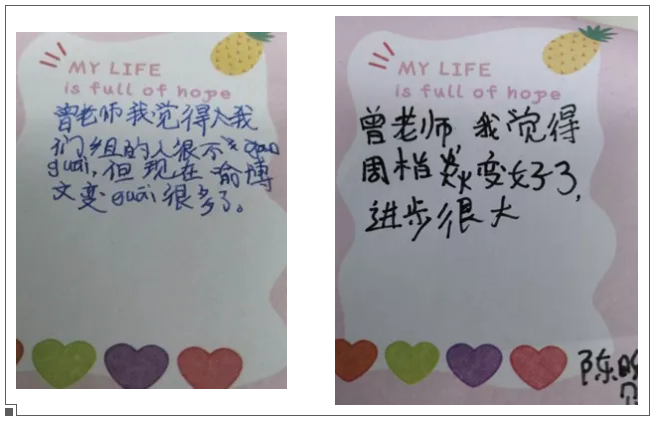 MY LIFE
is full of hope
曾老师我觉得我
们组的人很不
guai，但现在俞博
文变guāi很多了。
MY LIFE
is full of hope
曾老师，我觉得
周梢焱变好了，
进步很大
陈